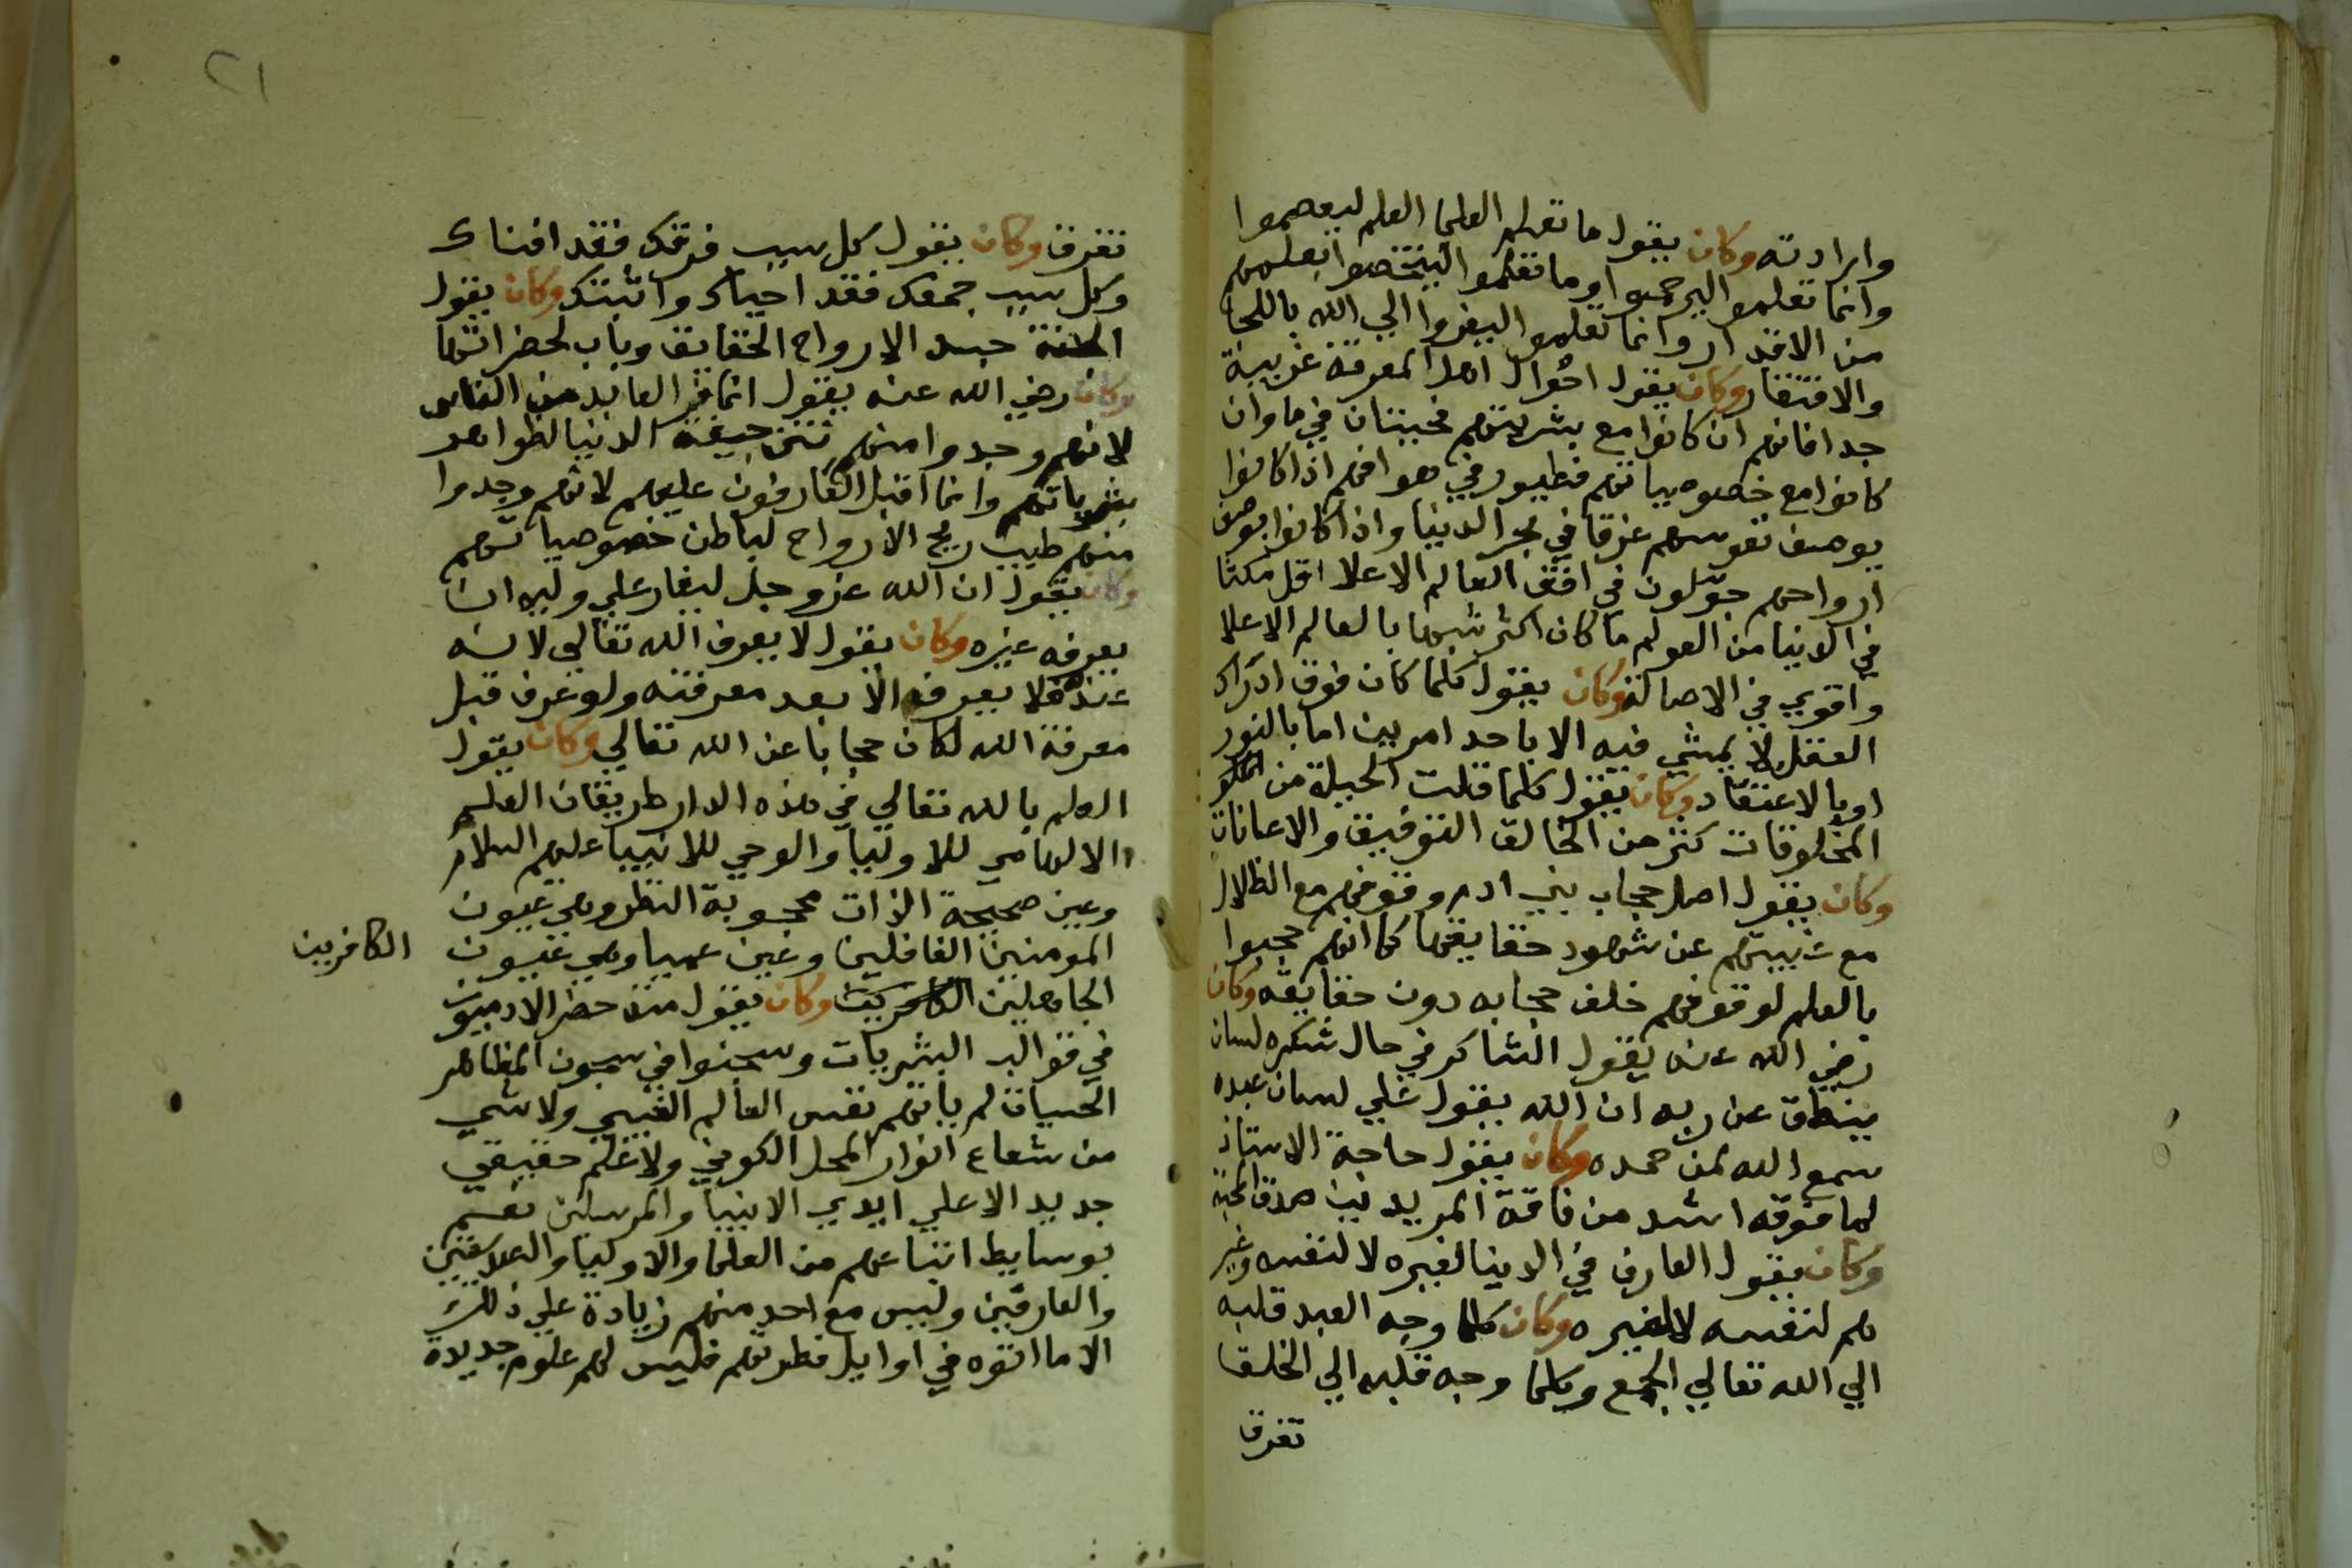 وارادته وكان يقول ما تعلم العلما العلم ليعصموا
وانما تعلموا ليرحموا وما تعلموا ليتخصوا بعلمهم
من الاقدار وانما تعلموا ليفروا الي الله باللجا
والافتقار وكان يقول احوال اهل المعرفة غريبة
جدا فانهم ان كانوا مع بشريتهم فحيتان في ما وان
كانوا مع خصوصياتهم فطيور في هوا فهم اذا كانوا
بوصف نفوسهم غرقا في بحر الدنيا واذا كانوا بوصف
ارواحهم جوّلون في افق العالم الاعلا اقل مكثا
في الدنيا من العولم ما كان اكثر شبها بالعالم الاعلا
واقوي في الاصالة وكان يقول كلما كان فوق ادراك
العقل لا يمشي فيه الا باحد امرين اما بالنور
او بالاعتقاد وكان يقول كلما قلت الحيلة من
المخلوقات كثر من الخالق التوفيق والاعانات
وكان يقول اصل حجاب بني ادم وقوفهم مع الظلال
مع شهود حقايقها كما انهم حجبوا
بالعلم لوقوفهم خلف حجابه دون حقايقه وكان
رضي الله عنه يقول الشاكر في حال شكره لسان
ينطق عن ربه ان الله يقول علي لسان عبده
سمع الله لمن حمده وكان يقول حاجة الاستاذ
لما فوقه اشد من فاقة المريد صدق المحبة
وكان يقول العارف في الدينا لغيره لا لنفسه وغير
هم لنفسه لا لغيره وكان كلما وجه العبد قلبه
الي الله تعالي اجمع وكلما وجه قلبه الي الخلق
تفرق
٢١
تفرق وكان يقول كل سبب فرقك فقد افناك
وكل سبب جمعك فقد احياك واثبتك وكان يقول
الجنة جسد الارواح الحقايق وباب لحضراتها
وكان رضي الله عنه يقول انما فر العابد من الناس
لانهم وجدوا منهم نتن جيفة الدنيا لظواهر
بشرياتهم وانما اقبل العارفون عليهم لانهم وجدوا
منهم طيب ريح الارواح لباطن خصوصياتهم
وكان يقول ان الله عز وجل ليغار علي وليه ان
يعرفه غيره وكان يقول لا يعرف الله تعالي لانه
عنده فلا يعرفه الا بعد معرفته ولو عرف قبل
معرفة الله لكان حجابا عن الله تعالي وكان يقول
العلم بالله تعالي في هذه الدار طريقان العلم
الالهامي للاوليا والوحي للانبيا عليهم السلام
وعين صحيحة الذات محجوبة النظر وهي عيون
المومنين الغافلين وعين عميا وهي عيون
الكافرين
الجاهلين وكان يقول منذ حضر الادميون
في قوالب البشريات وسجنوا في سجون المظاهر
الحسيات لم ياتهم نفس العالم الغيبي ولا شي
من شعاع انوار المحل الكوني ولا علم حقيقي
جديد الا علي ايدي الانبيا والمرسلين نعم
بوسايط اتباعهم من العلما والاوليا والعلاسفين
والعارفين وليس مع احد منهم زيادة علي ذلك
الا ما القوه في اوايل فطرتهم فليس لهم علوم جديدة